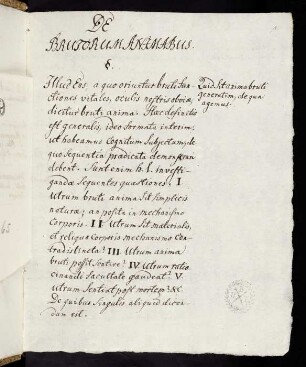 DE
BRUTORUM ANIMABUS.
§.
Illud Ens, a quo oriuntur bruti fun-
ctiones vitales, oculis nostris obviae,
dicitur bruti anima. Haec definitio
est generalis, ideo formata interim,
ut habeamus cognitum Subjectum, de
quo sequentia praedicata demonstrari
debent. Sunt enim h. l. investi-
ganda sequentes quaestiones. I
Utrum bruti anima sit simplicis
naturae; an posita in mechanismo
corporis. II Utrum sit materialis,
et reliquo corporis mechanismo con-
tradistincta? III Utrum anima
bruti possit sentire? IV Utrum ratio-
cinandi facultate gaudeat? V
Utrum sentiat post mortem? &c
De quibus singulis aliquid dicen-
dum est.
Quid sit anima bruti
generatim, de qua
agemus.
65